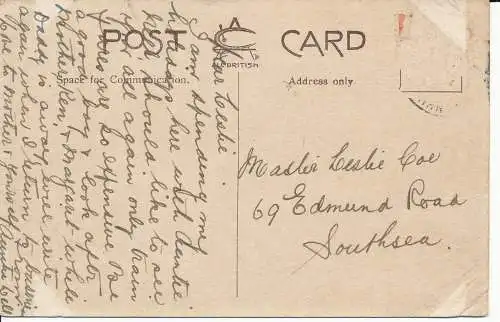 POST CARD
ALL BRITISH
Space for Communication.
Address only.
Dear Leslie.
I am spending my
holidays here with Auntie
& should like to see
you all again only train
fares are so expensive Be
a good boy & look after
Mother, Ken, & Margaret while
Daddy is away, will write
again when I return to
Love to Mother & Yourself Auntie Nell
Master Leslie Coe
69 Edmund Road
Southsea.